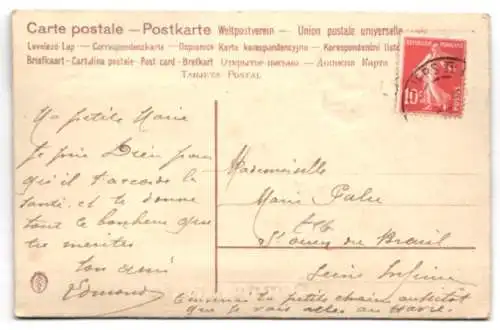 Carte postale — Postkarte Weltpostverein — Union postale universelle
Levelező Lap — Correspondenzkarte — Dopisnice Karta korespondencyjna — Korespondenční lístek
Briefkaart — Cartolina postale — Post card — Brefkort Открытое письмо — Дописна Карта
Tarjeta Postal
REPUBLIQUE FRANÇAISE
10c
POSTES
Ma petite Marie
Je prie Dieu pour
qu'il t'accorde la
santé, et te donne
tout le bonheur que
tu mérites
ton ami
Edmond
Mademoiselle
Marie Palu
St Ouen du Breuil
Seine Infre
ta petite chaîne aussitôt
que je vais aller au Havre.